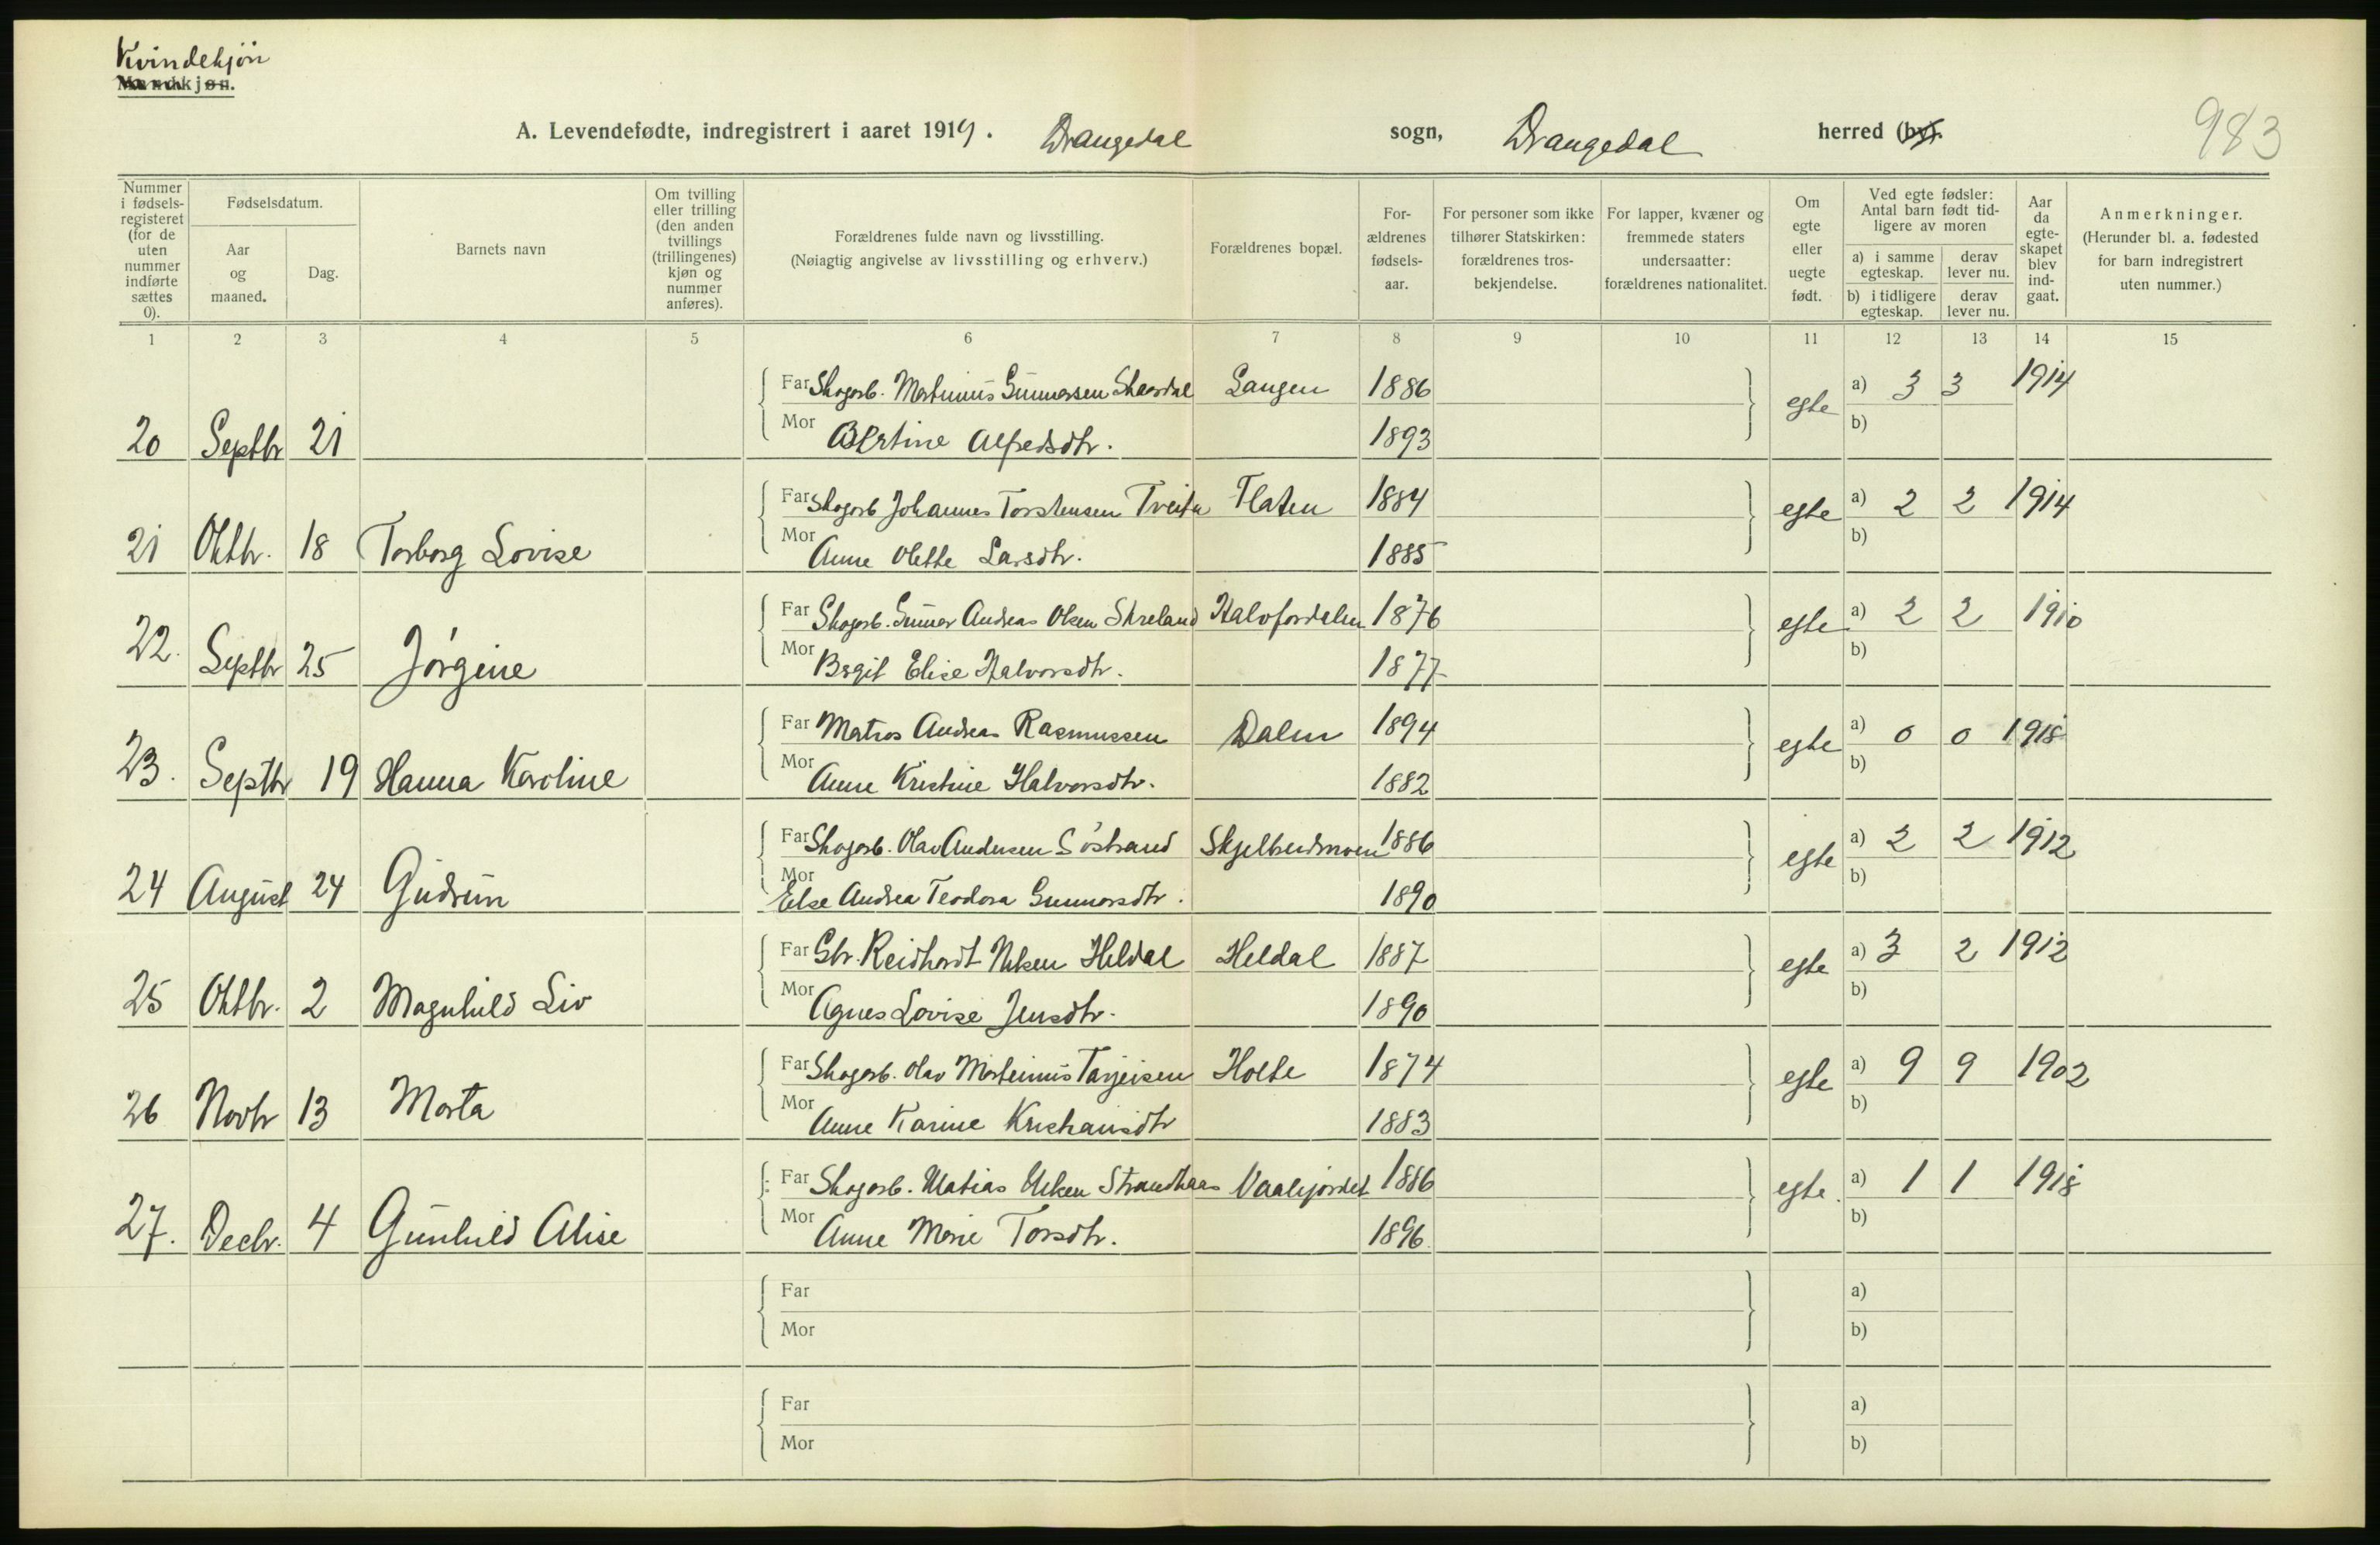 Kvindekjön
Mandkjøn.
A. Levendefødte, indregistrert i aaret 1919. Drangedal sogn, Drangedal herred (by).
983
Nummer i fødsels-registeret (for de uten nummer indførte sættes 0).
Fødselsdatum.
Aar og maaned.
Dag.
Barnets navn
Om tvilling eller trilling (den anden tvillings (trillingenes) kjøn og nummer anføres).
Forældrenes fulde navn og livsstilling.
(Nøiagtig angivelse av livsstilling og erhverv.)
Forældrenes bopæl.
For-ældrenes fødsels-aar.
For personer som ikke tilhører Statskirken: forældrenes tros-bekjendelse.
For lapper, kvæner og fremmede staters undersaatter: forældrenes nationalitet.
Om egte eller uegte født.
Ved egte fødsler: Antal barn født tid-ligere av moren
a) i samme egteskap.
derav lever nu.
b) i tidligere egteskap.
derav lever nu.
Aar da egte-skapet blev ind-gaat.
Anmerkninger.
(Herunder bl. a. fødested for barn indregistrert uten nummer.)
1 2 3 4 5 6 7 8 9 10 11 12 13 14 15
Far Skogarb. Martinius Gunnarsen Skaardal Langen 1886 egte a) 3 3 1914
20 Septbr 21 Mor Bertine Alfredsdtr. 1893 b)
Far Skogarb Johannes Torstensen Tveita Flaten 1884 egte a) 2 2 1914
21 Oktbr. 18 Torborg Lovise Mor Anne Olette Larsdtr. 1885 b)
Far Skogarb. Gunnar Andreas Olsen Skreland Halvfordalen 1876 egte a) 2 2 1910
22. Septbr 25 Jörgine Mor Birgit Elise Halvorsdtr. 1877 b)
Far Matros Andreas Rasmussen Dalen 1894 egte a) 0 0 1918
23. Septbr 19 Hanna Karoline Mor Anne Kristine Halvorsdtr. 1882 b)
Far Skogarb. Olav Andersen Söstrand 1886 egte a) 2 2 1912
24 August 24 Gudrun Mor Else Andrea Teodora Gunnarsdtr. 1890 b)
Far Gbr. Reidhardt Nilsen Heldal Heldal 1887 egte a) 3 2 1912
25 Oktbr. 2 Magnhild Liv Mor Agnes Lovise Jensdtr. 1890 b)
Far Skogarb. Olav Martinius Tarjeisen Holte 1874 egte a) 9 9 1902
26 Novbr 13 Marta Mor Anne Karine Kristiansdtr 1883 b)
Far Skogarb. Matias Nilsen Strandhaas Vaalijordet 1886 egte. a) 1 1 1918
27. Decbr. 4 Gunhild Alise Mor Anne Marie Torsdtr. 1896 b)
Far a)
Mor b)
Far a)
Mor b)